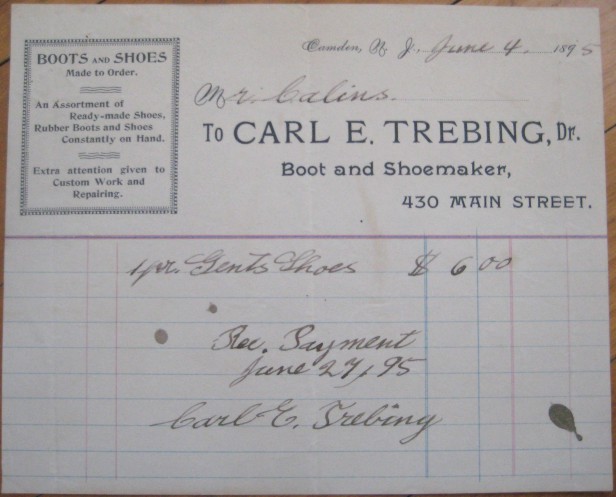 BOOTS AND SHOES
Made to Order.
An Assortment of
Ready-made Shoes,
Rubber Boots and Shoes
Constantly on Hand.
Extra attention given to
Custom Work and
Repairing.
Camden, N. J. June 4 1895
Mr. Calins.
To CARL E. TREBING, Dr.
Boot and Shoemaker,
430 MAIN STREET.
1 pr. Gents Shoes $ 6 00
Rec. Payment
June 27, 95
Carl E. Trebing